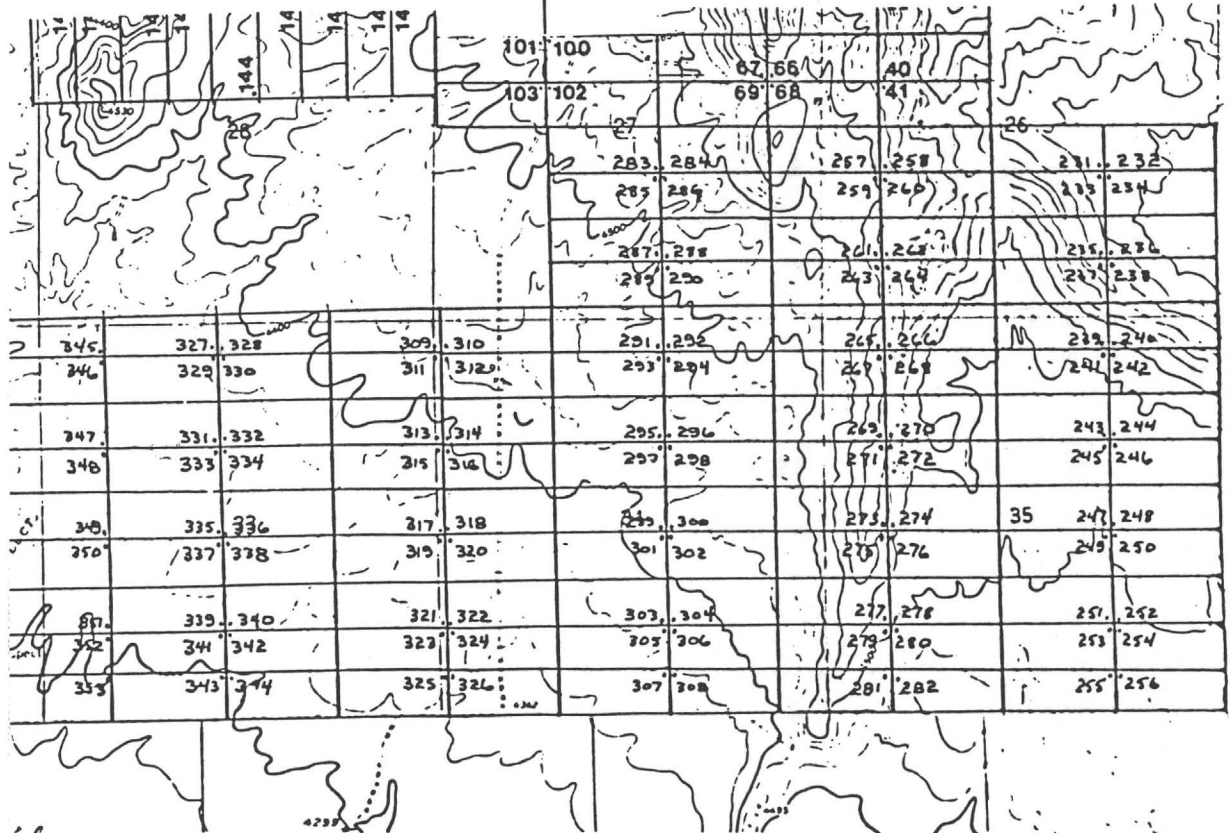 144
101 100
67 66 40
103 102 69 68 41
4530
28 27 26
283 284 257 258 231 232
285 286 259 260 233 234
4500
287 288 261 262 235 236
289 290 263 264 237 238
4400
345 327 328 309 310 291 292 265 266 239 240
346 329 330 311 312 293 294 267 268 241 242
347 331 332 313 314 295 296 269 270 243 244
348 333 334 315 316 297 298 271 272 245 246
349 335 336 317 318 299 300 273 274 35 247 248
350 337 338 319 320 301 302 275 276 249 250
351 339 340 321 322 303 304 277 278 251 252
352 341 342 323 324 305 306 279 280 253 254
353 343 344 325 326 307 308 281 282 255 256